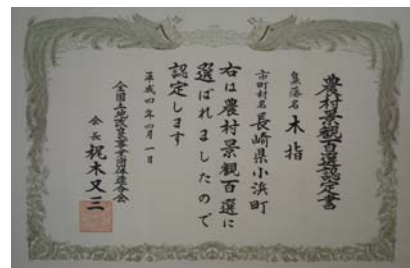 農村景観百選認定書
集落名 木指
市町村名 長崎県小浜町
右は農村景観百選に
選ばれましたので
認定します
平成四年四月一日
全国土地改良事業団体連合会
会長 梶木又三